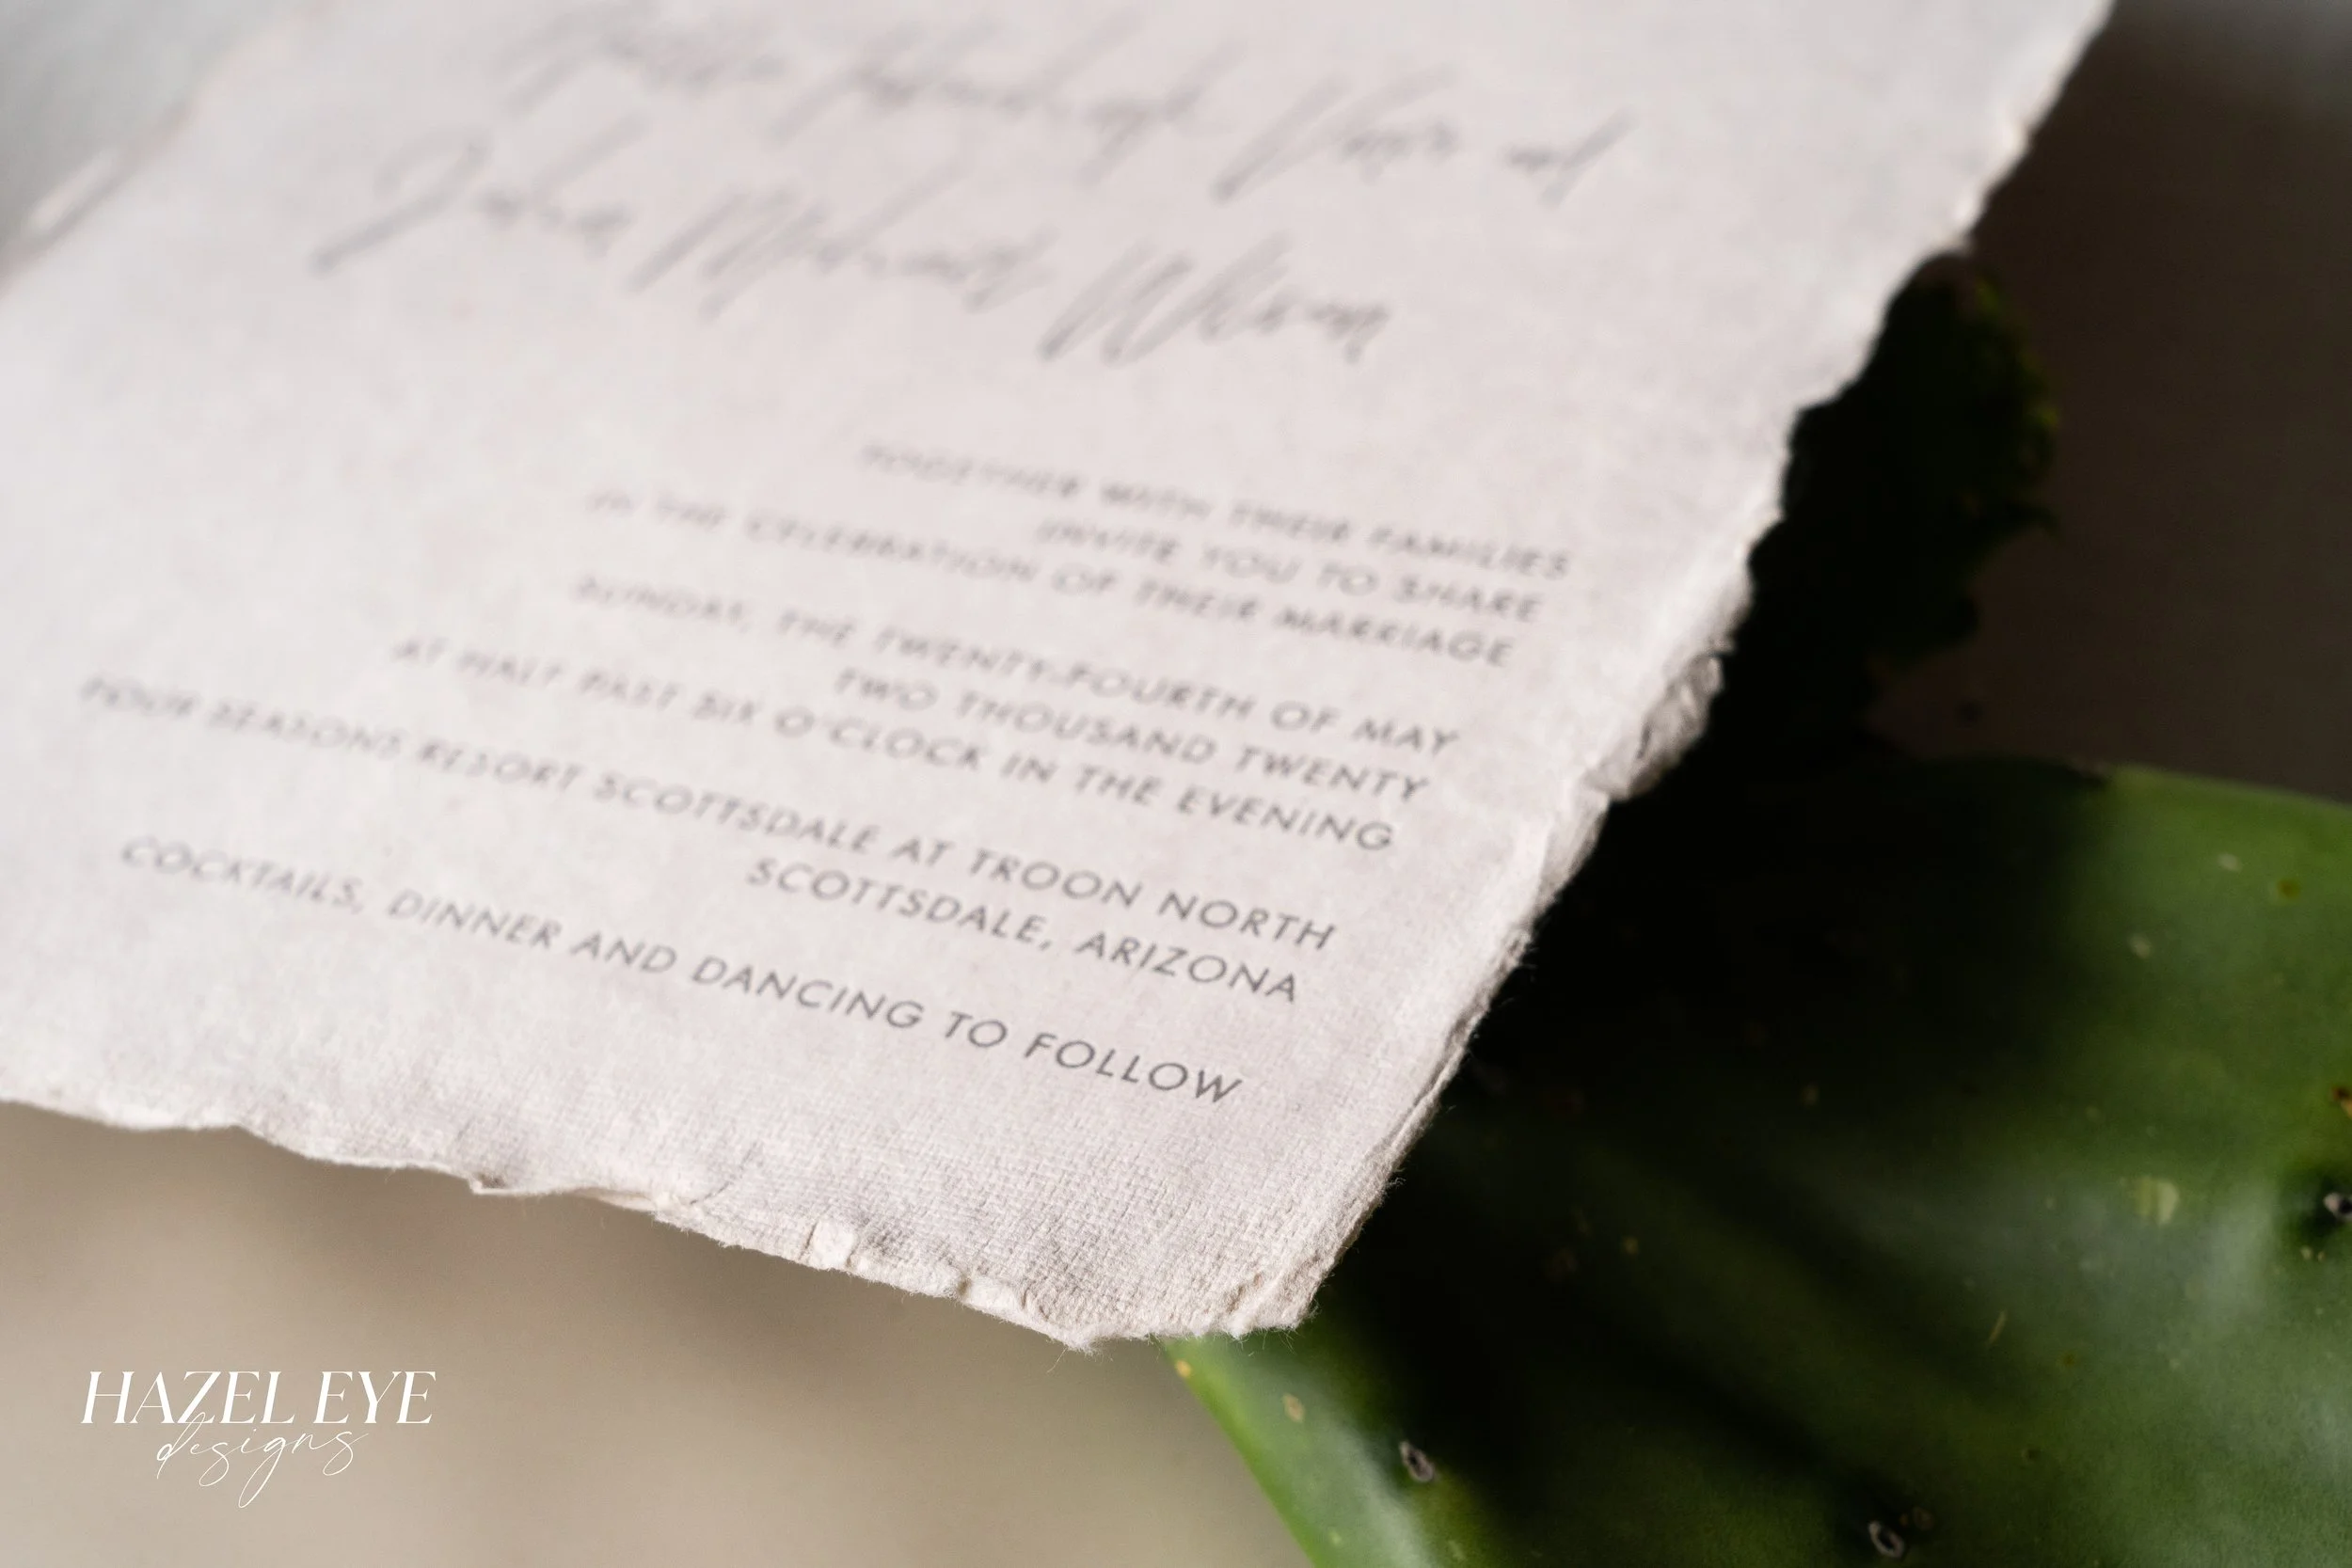 and
Wilson
TOGETHER WITH THEIR FAMILIES
INVITE YOU TO SHARE
IN THE CELEBRATION OF THEIR MARRIAGE
SUNDAY, THE TWENTY-FOURTH OF MAY
TWO THOUSAND TWENTY
AT HALF PAST SIX O'CLOCK IN THE EVENING
FOUR SEASONS RESORT SCOTTSDALE AT TROON NORTH
SCOTTSDALE, ARIZONA
COCKTAILS, DINNER AND DANCING TO FOLLOW
HAZEL EYE
designs